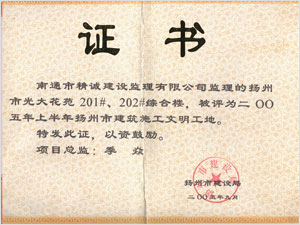 证书
南通市精诚建设监理有限公司监理的扬州
市光大花苑 201#、202#综合楼，被评为二OO
五年上半年扬州市建筑施工文明工地。
特发此证，以资鼓励。
项目总监：季 焱
扬州市建设局
二OO五年九月